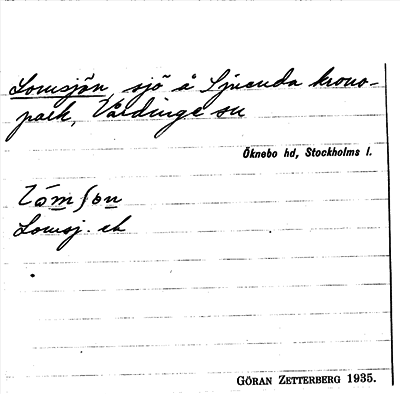 Lomsjön, sjö å Ljucnda krono-
park, Vårdinge sn
Öknebo hd, Stockholms l.
Lomsj. ek
GÖRAN ZETTERBERG 1935.